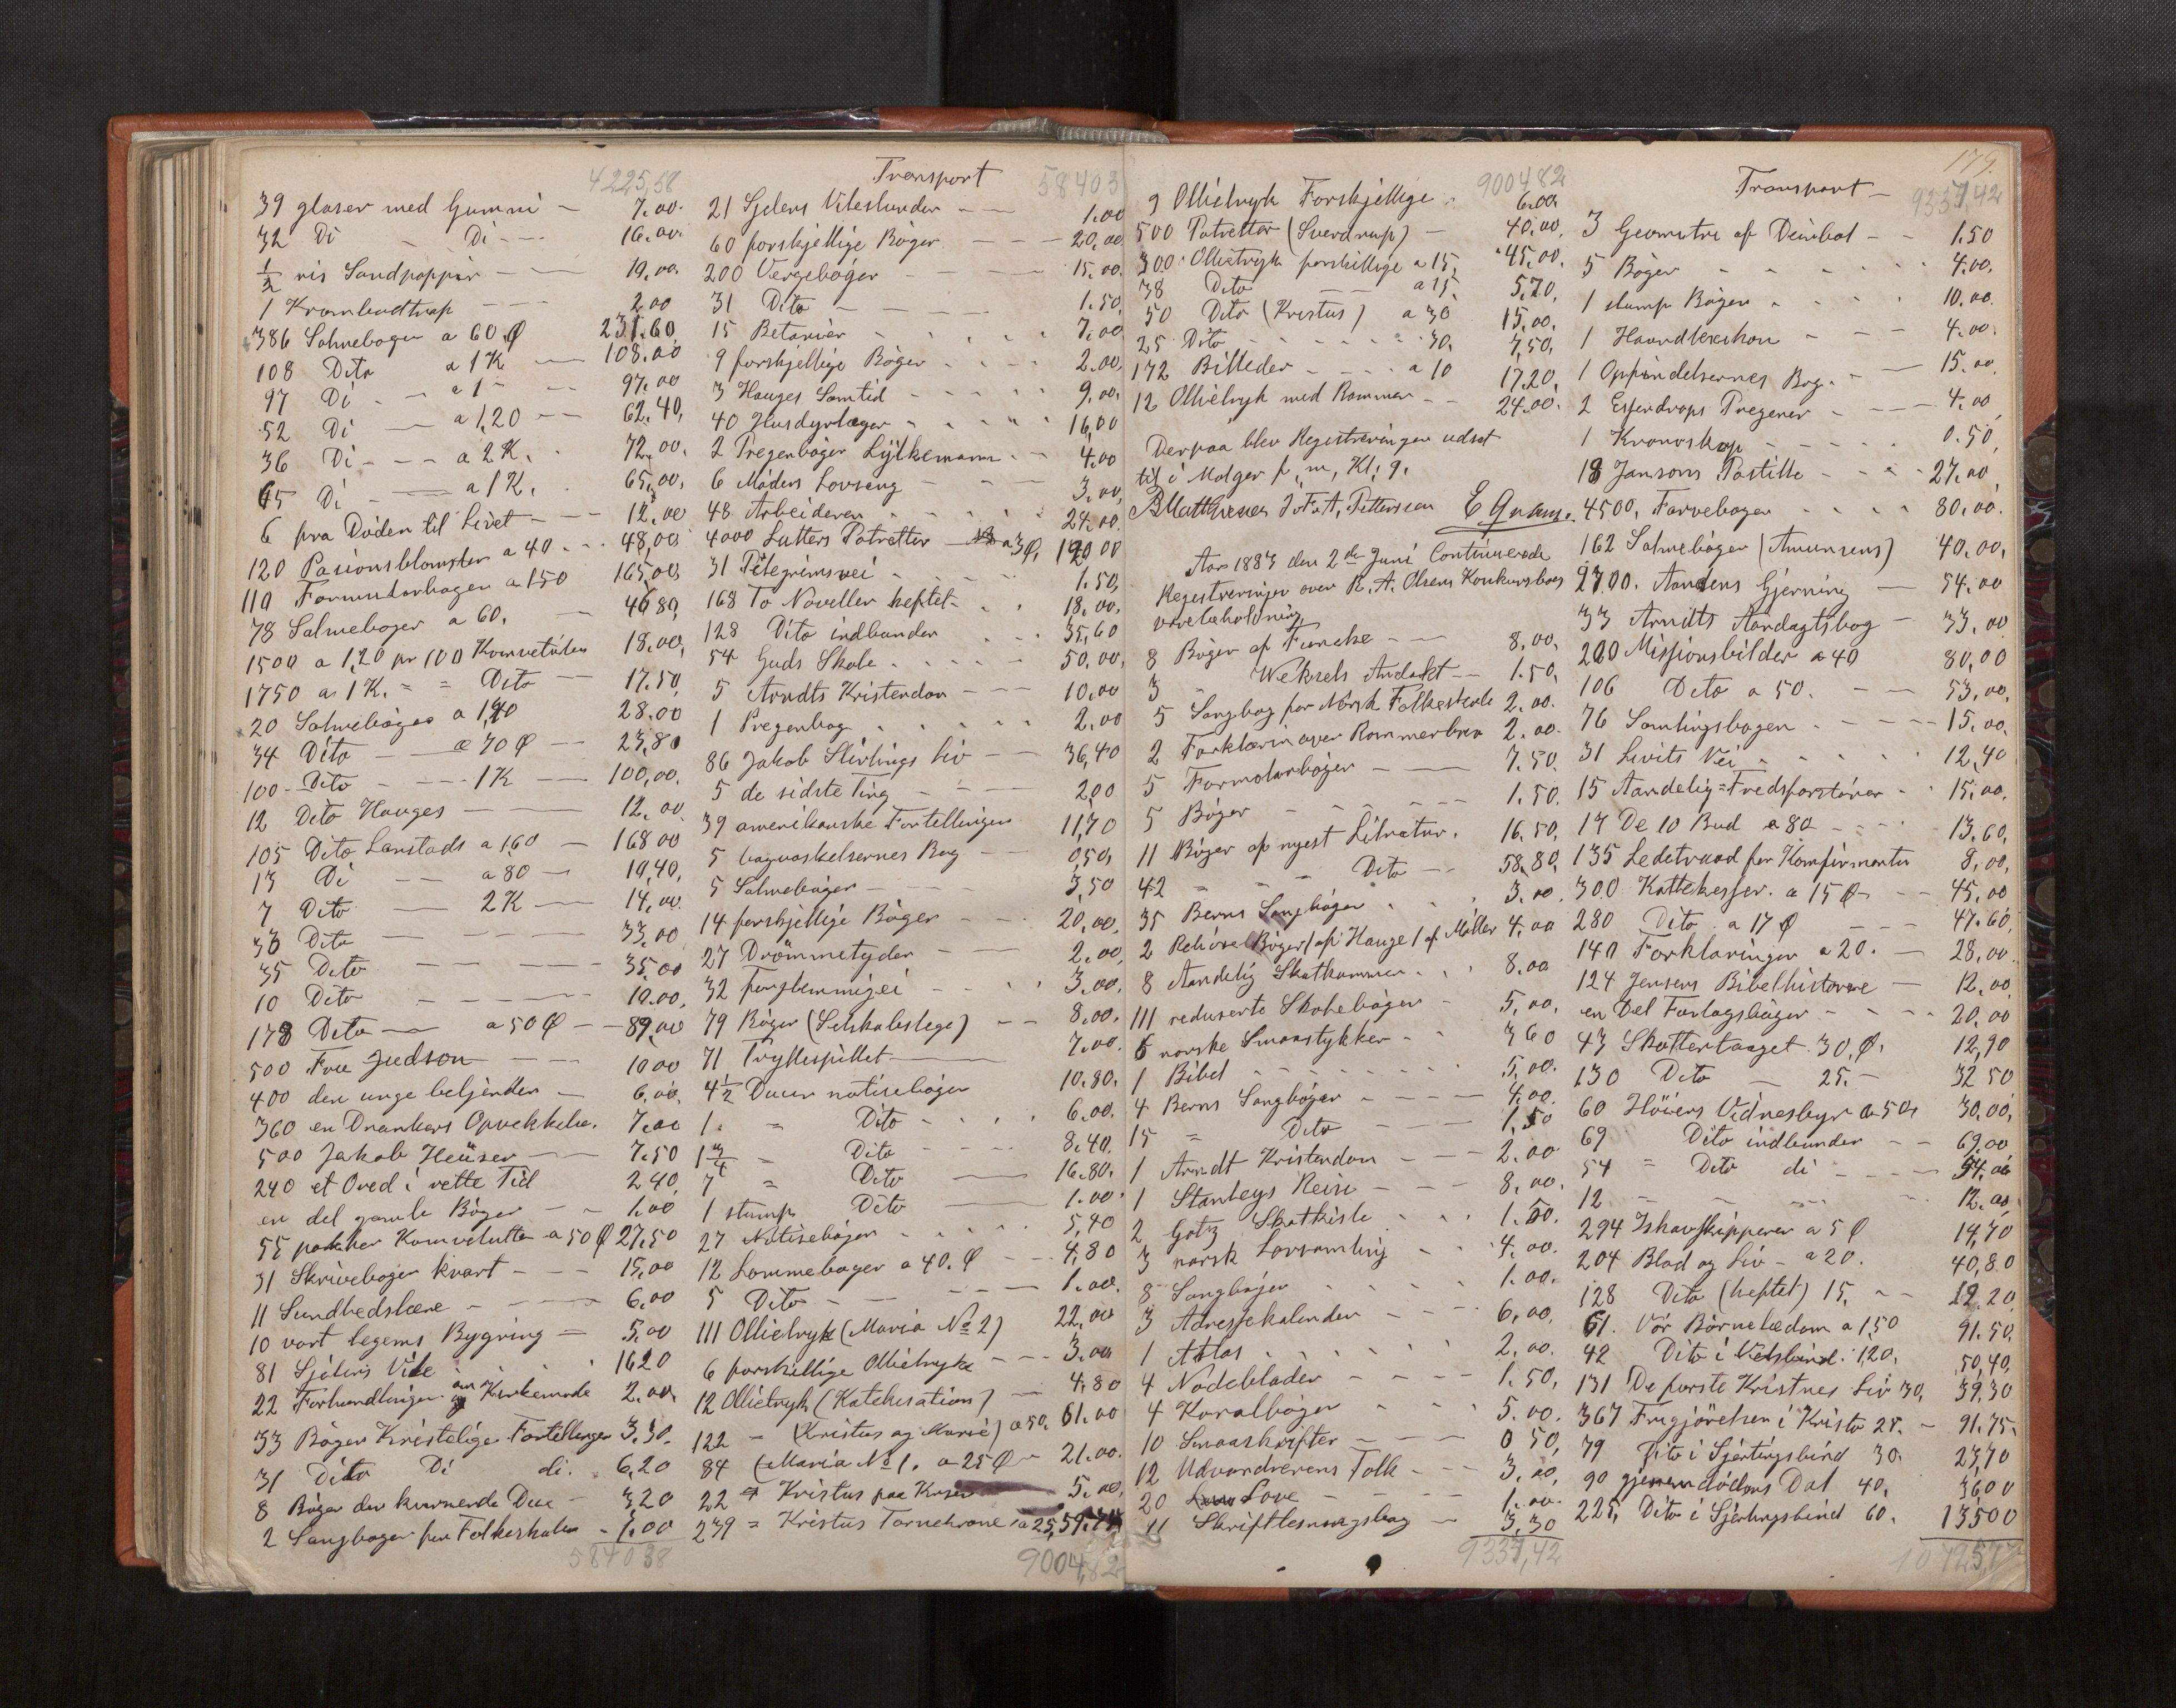 4225,58
39 glaser med Gummi - 7.00.
32 Di - Di - 16.00.
1/2 ris Sandpappir - 19.00.
1 Krambodtrap - 2.00
386 Salmeboger a 60 Ø 231.60.
108 Dito a 1 K - 108.00
97 Di - a 1 - 97.00
52 Di - a 1,20 - 62.40,
36 Di - a 2 K. 72.00.
65 Di - a 1 K. 65.00,
6 fra Döden til Livet - 12.00
120 Pasionsblomster a 40 - 48,00
110 Formularbogen a 150 165,00,
78 Salmeboger a 60. - 46.80,
1500 a 1,20 pr 100 Konveluter 18.00,
1750 a 1 K. = = Dito 17.50,
20 Salmeböger a 1,40 28.00
34 Dito - a 70 Ø - 23,80
100 - Dito - 1 K - 100,00.
12 Dito Hauges - 12.00.
105 Dito Lanstads a 160 - 168 00
13 Di - a 80 - 10,40,
7 Dito - 2 K - 14,00.
33 Dito - 33,00
35 Dito - 35.00
10 Dito - 10.00,
178 Dito - a 50 Ø - 89,00
500 Fru Judson - 10 00
400 den unge betjenten - 6,00.
360 en Drankers Opvekkelse. 7.00
500 Jakob Heüser - 7.50
240 et Oved i rette Tid 2 40,
en del gamle Böger - 1.00
55 pakker Konvelutter a 50 Ø 27,50
31 Skriveboger kvart - 15,00
11 Sundhedslære - 6.00
10 vort legems Bygning - 5.00
81 Sjelens Vile - 16 20
22 Forhandlinger om Kirkemøde 2.00.
33 Böger Kristelige Fortellinger 3,30.
31 Dito Di di. 6,20
8 Böger den kurrende Due - 3,20
2 Sangboger for Folkeskolen - 1.00
584038
Transport 58403
21 Sjelens Vilestunder - 1.00
60 forskjellige Böger - 20,00.
200 Vergeböger - 15.00.
31 Dito - 1.50,
15 Betanier - 7,00
9 forskjellige Böger - 2.00,
3 Hauges Samtid - 9.00,
40 Husdyrlæger - 16,00
2 Pregenböger Lytkemann - 4.00
6 Mödens Lovsang - 3.00,
48 Arbeideren - 24.00.
4000 Lutters Potretter - a 3 Ø, 120 00
31 Pilegrimsvei - 1.50,
168 To Noveller heftet - 18.00,
128 Dito indbunden - 35,60
54 Guds Skole - 50,00,
5 Arndts Kristendom - 10.00
1 Pregenbog - 2.00
86 Jakob Slirlings Liv - 36,40
5 de sidste Ting - 2,00
39 amerikanske Fortellinger 11,70
5 bagvaskelsernes Bog - 0,50,
5 Salmeböger - 3,50
14 forskjellige Böger - 20.00.
27 Drömmetyder - 2.00,
32 forglemmigei - 3.00.
79 Böger (Selskabslege) - 8.00.
71 Tryllespillet - 7.00.
4 1/2 Dusin notiseböger 10.80.
1. = Dito - 6.00.
1 3/4 = Dito - 8.40.
7 = Dito - 16.80.
1 stump Dito - 1.00.
27 Notiseböger - 5,40
12 Lommeboger a 40. Ø - 4,80
5 Dito - 1.00.
111 Ollietryk (Maria No 2) 22,00
6 forskillige Ollietryk - 3.00
12 Ollietryk (Katekisation) - 4,80
122 - (Kristus og Marie) a 50. 61.00
84 (Maria No 1. a 25 Ø - 21.00.
22 = Kristus paa Korset 5,00,
239 = Kristus Tornekrone a 25, 59.75
9004,82
900482
9 Ollietryk Forskjellige 6.00
500 Potretter (Sverdrup) - 40,00,
300 Ollietryk forskillige a 15, 45,00.
38 Dito - a 15. 5,70,
50 Dito (Kristus) a 30 15,00.
25 Dito - 30. 7,50,
172 Billeder - a 10 17,20,
12 Ollietryk med Rammer - 24.00.
Derpaa blev Registreringen udsat
til i Molger f, m, Kl, 9.
B Matthiesen J. F. A, Pettersen E Gram.
Aar 1883 den 2de Juni Continuerede
Registreringen over R. A. Olsens Konkursboes
varebeholdning
8 Böger af Funcke - 8,00,
3 Weksels Andakt - 1.50,
5 Sangbog for Norsk Folkeskole 2.00.
2 Forklaring over Rommerbrev 2.00.
5 Formolarböger - 7.50.
5 Böger - 1.50.
11 Böger af nyest Litratur. 16.50,
42 = = Dito - 58,80,
35 Berns Sangböger - 3.00,
2 Reliöse Böger 1 af Hauge 1 af Möller 4,00
8 Aandelig Skatkammer - 8.00
111 reduserte Skoleböger - 5,00,
6 norske Smaastykker - 3 60
1 Bibel - 5,00.
4 Berns Sangböger - 4,00.
15 = Dito - 1,50
1 Arndt Kristendom - 2.00
1 Stanleys Reise - 8,00.
2 Gotz Skatkiste - 1.50.
3 norsk Lovsamling - 4.00.
8 Sangböger - 1.00.
3 Adressekalender - 6,00,
1 Atlas - 2,00.
4 Nodeblader - 1.50,
4 Koralböger - 5.00.
10 Smaaskrifter - 0 50,
12 Udvandrerens Tolk - 3,00,
20 Love - 1,00.
11 Skriftlesningsbog - 3,30
9337,42
179.
Transport - 9337,42
3 Geometri af Deinbol - 1.50
5 Böger - 4.00.
1 stump Böger - 10.00.
1 Haandlexikon - 4.00.
1 Opfindelsernes Bog. - 15.00.
2 Esfendrops Pregener - 4.00
1 Kronoskop - 0.50,
18 Jansons Postille - 27.00,
4500, Farveboger - 80,00.
162 Salmeböger (Amunsens) 40.00,
2700. Aandens Gjerning - 54.00
33 Arndts Aandagtsbog - 33,00
200 Missionsbilder a 40 80,00
106 Dito a 50. - 53,00,
76 Samlingsbogen - 15,00,
31 Livits Vei - 12,40
15 Aandelig=Fredsforstörer - 15,00.
17 De 10 Bud a 80 - 13,60,
135 Ledetraad for Konfirmanter 8,00,
300 Kattekesser. a 15 Ø - 45,00
280 Dito a 17 Ø - 47.60,
140 Forklaringer a 20. - 28,00.
124 Jensens Bibelhistorie - 12,00
en Del Forlagsböger - 20,00
43 Skattertaaget 30, Ø. 12,90
130 Dito - 25. - 32 50
60 Höiers Vidnesbyr a 50, 30,00,
69 Dito indbunden - 69.00
54 = Dito di - 54.00
12 = - - 12.00.
294 Ishavskipperen a 5 Ø 14,70
204 Blod og Liv - a 20. 40,80
128 Dito (heftet) 15, - 19 20
61. Vor Börnelædom a 1,50 91.50.
42 Dito i Velsbind. 1,20. 50,40,
131 De forste Kristnes Liv 30, 39,30
367 Frigjörelsen i Kristo 25. - 91.75.
79 Dito i Sjertingsbind 30. 23,70
90 gjenem dödens Dal 40. 36 00
225, Dito i Sjertingsbind 60. 135 00
10725,77